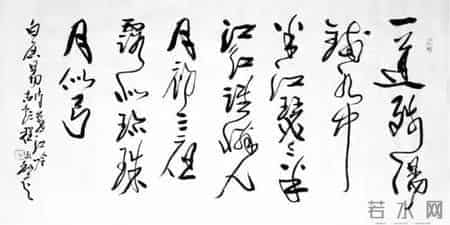 一道殘陽
鋪水中
半江瑟々半
江紅誰憐九
月初三夜
露似珍珠
月似弓
白居易詩暮江吟
若水网